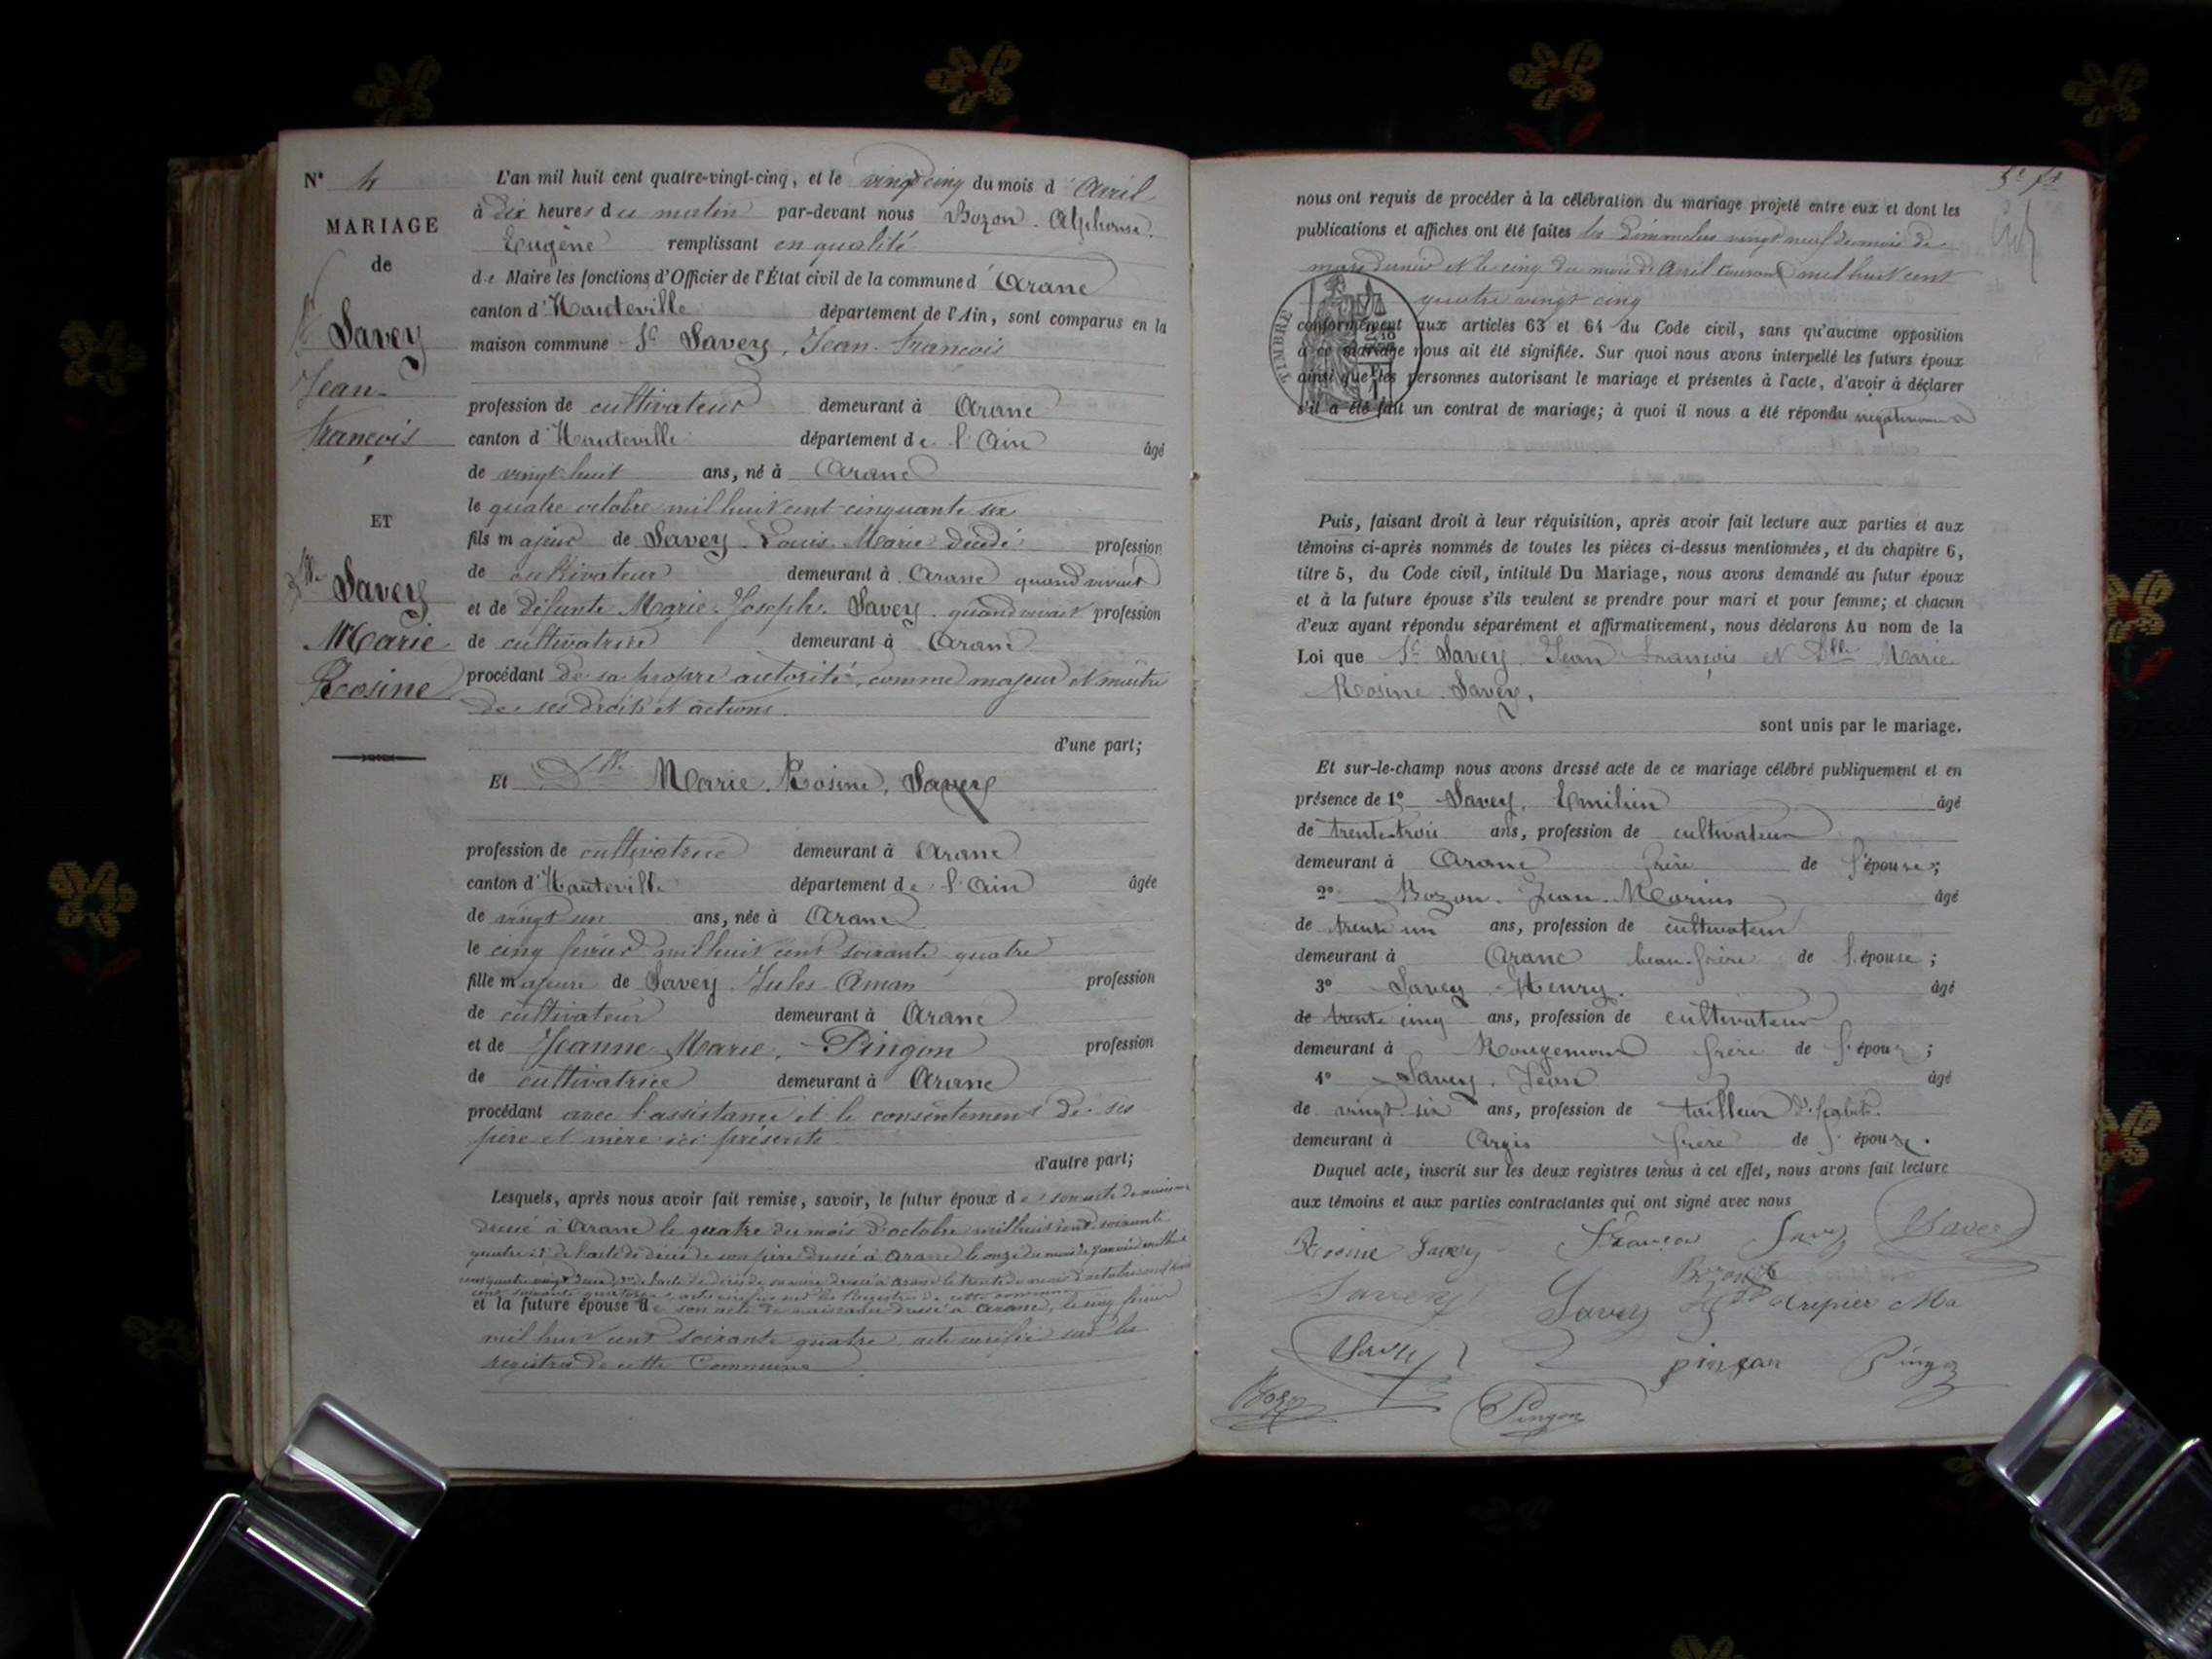 N° 4
MARIAGE
de
Sr Savey
Jean-
François
ET
Dlle Savey
Marie
Rosine
L'an mil huit cent quatre-vingt-cinq, et le vingt cinq du mois d'Avril
à dix heures du matin par-devant nous Bozon Alphonse
Eugène remplissant en qualité
de Maire les fonctions d'Officier de l'État civil de la commune d'Aranc
canton d'Hauteville département de l'Ain, sont comparus en la
maison commune Sr Savey, Jean-François
profession de cultivateur demeurant à Aranc
canton d'Hauteville département de l'Ain âgé
de vingt huit ans, né à Aranc
le quatre octobre mil huit cent cinquante six
fils majeur de Savey Louis Marie décédé profession
de cultivateur demeurant à Aranc quand vivait
et de défunte Marie-Joseph Savey quand vivait profession
de cultivatrice demeurant à Aranc
procédant de sa propre autorité, comme majeur et maître
de ses droits et actions.
d'une part;
Et Dlle Marie Rosine, Savey
profession de cultivatrice demeurant à Aranc
canton d'Hauteville département de l'Ain âgée
de vingt un ans, née à Aranc
le cinq février mil huit cent soixante quatre
fille majeure de Savey Jules Aman profession
de cultivateur demeurant à Aranc
et de Jeanne Marie Pingon profession
de cultivatrice demeurant à Aranc
procédant avec l'assistance et le consentement de ses
père et mère ici présents
d'autre part;
Lesquels, après nous avoir fait remise, savoir, le futur époux de son acte de naissance
dressé à Aranc le quatre du mois d'octobre mil huit cent soixante
quatre 2° de l'acte de décès de son père dressé à Aranc le onze du mois de janvier mil huit
cent quatre vingt deux, 3° de l'acte de décès de sa mère dressé à Aranc le trente du mois d'octobre mil huit
cent soixante quatorze, actes vérifiés sur les Registres de cette commune
et la future épouse de son acte de naissance dressé à Aranc, le cinq février
mil huit cent soixante quatre, acte vérifié sur les
registres de cette Commune
nous ont requis de procéder à la célébration du mariage projeté entre eux et dont les
publications et affiches ont été faites les dimanches vingt neuf du mois de
mars dernier et le cinq du mois de Avril courant mil huit cent
quatre vingt cinq
TIMBRE
conformément aux articles 63 et 64 du Code civil, sans qu'aucune opposition
à ce mariage nous ait été signifiée. Sur quoi nous avons interpellé les futurs époux
ainsi que les personnes autorisant le mariage et présentes à l'acte, d'avoir à déclarer
s'il a été fait un contrat de mariage; à quoi il nous a été répondu négativement
Puis, faisant droit à leur réquisition, après avoir fait lecture aux parties et aux
témoins ci-après nommés de toutes les pièces ci-dessus mentionnées, et du chapitre 6,
titre 5, du Code civil, intitulé Du Mariage, nous avons demandé au futur époux
et à la future épouse s'ils veulent se prendre pour mari et pour femme; et chacun
d'eux ayant répondu séparément et affirmativement, nous déclarons Au nom de la
Loi que Sr Savey Jean François et Dlle Marie
Rosine Savey,
sont unis par le mariage.
Et sur-le-champ nous avons dressé acte de ce mariage célébré publiquement et en
présence de 1° Savey, Emilien âgé
de trente-trois ans, profession de cultivateur
demeurant à Aranc frère de l'épouse;
2° Bozon Jean-Marius âgé
de trente un ans, profession de cultivateur
demeurant à Aranc beau-frère de l'épouse;
3° Savey Henry. âgé
de trente cinq ans, profession de cultivateur
demeurant à Rougemont frère de l'épouse;
4° Savey, Jean âgé
de vingt-six ans, profession de tailleur d'habits.
demeurant à Argis frère de l'épouse.
Duquel acte, inscrit sur les deux registres tenus à cet effet, nous avons fait lecture
aux témoins et aux parties contractantes qui ont signé avec nous
Rosine Savey François Savey Savey
Savey Savey Bozon
Savey pingon Pingon
Bozon Pingon